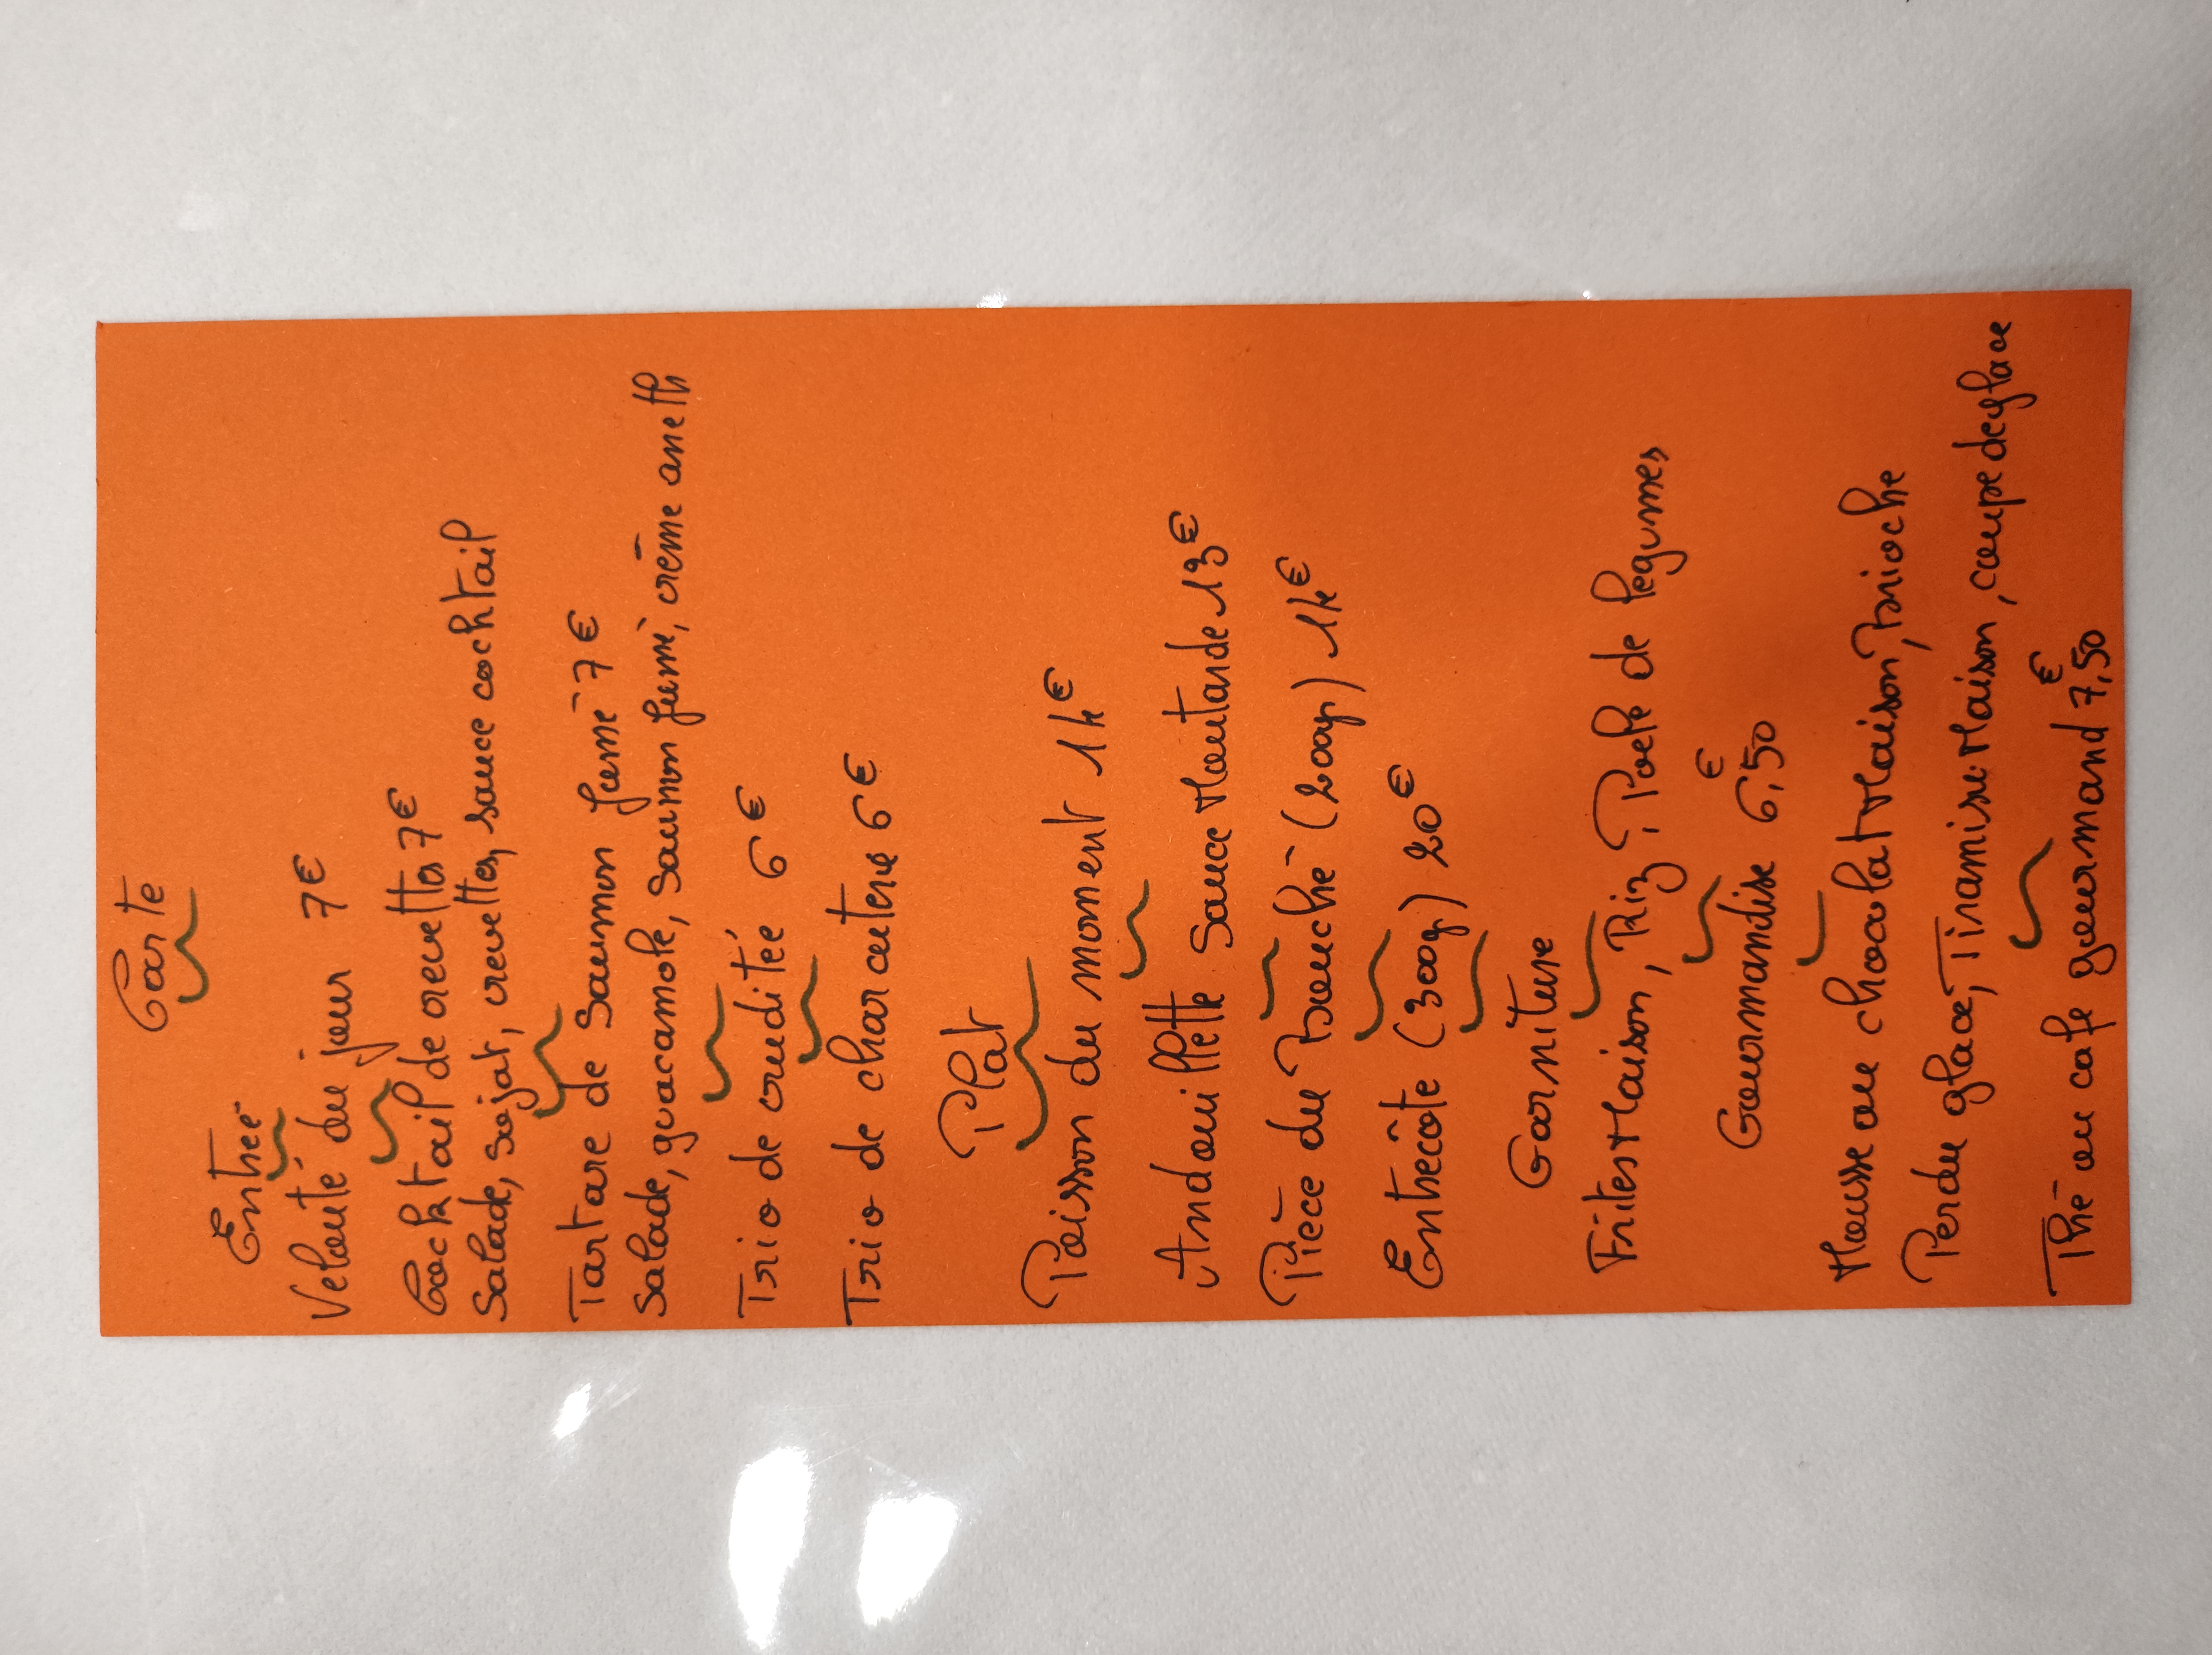 Carte
Entrée
Velouté du jour 7€
Cocktail de crevettes 7€
Salade, sojat, crevettes, sauce cocktail
Tartare de Saumon fumé 7€
Salade, guacamole, saumon fumé, crème aneth
Trio de cruditée 6€
Trio de charcuterie 6€
Plat
Poisson du moment 14€
Andouillette Sauce Moutarde 13€
Pièce du Bouché (200gr) 14€
Entrecôte (300gr) 20€
Garniture
Frites Maison, Riz, Poele de legumes
Gourmandise 6,50€
Mousse au chocolat Maison, Brioche
Perdu glacé, Tiramisu Maison, coupe de glace
Thé ou cafe gourmand 7,50€